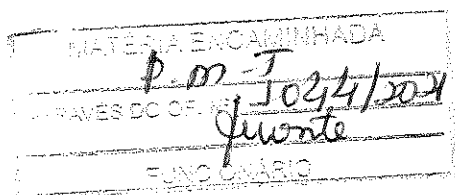 MATÉRIA ENCAMINHADA
P. M. J
ATRAVÉS DO OF. Nº 1044/2021
FUNCIONÁRIO